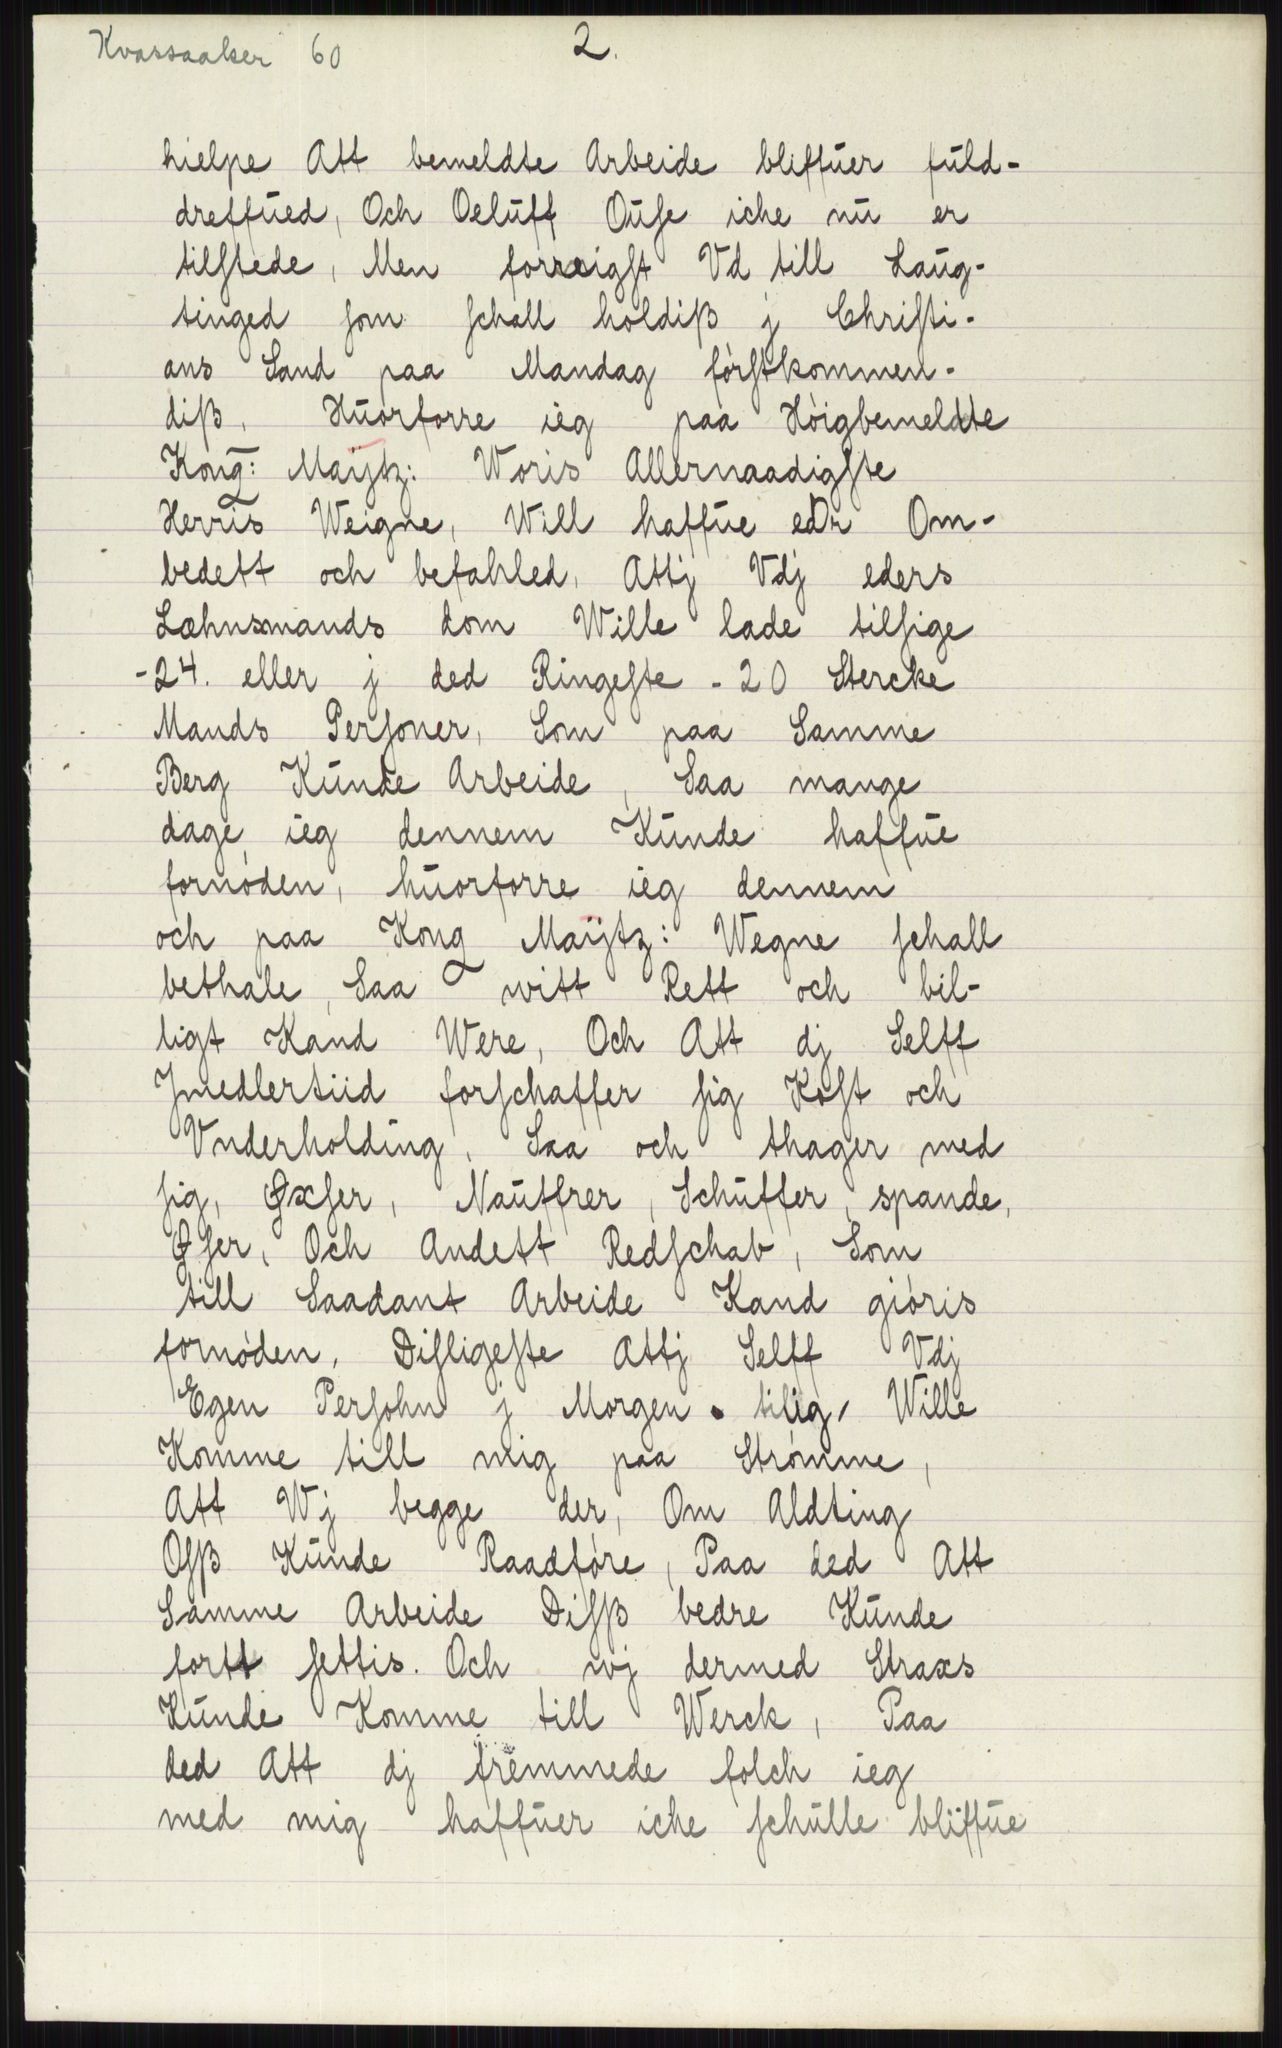 Kvassaaker 60
2.
hielpe Att bemeldte Arbeide bliffuer fuld-
dreffued, Och Oeluff Ouſe iche nu er
tilſtede, Men forreigſt Vd till Laug-
tinged ſom ſchall holdiß j Chriſti-
ans Sand paa Mandag førſtkommen-
diß, Huorforre ieg paa Høigbemeldte
Kong: Maÿtz: Woris Allernaadigſte
Herris Weigne, Will haffue edr Om-
bedett och befahled, Attj Vdj eders
Læhnsmands dom Wille lade tilſige
-24. eller j ded Ringeſte - 20 Stercke
Mands Perſoner, Som paa Samme
Berg Kunde Arbeide, Saa mange
dage ieg dennem Kunde haffue
fornøden, huorforre ieg dennem
och paa Kong Maÿtz: Wegne ſchall
bethale, Saa witt Rett och bil-
ligt Kand Were, Och Att dj Selff
Jmedlertiid forſchaffer ſig Koſt och
Vnderholding, Saa och thager med
ſig, Øxſer, Nauffrer, Schuffer, spande,
Øſer, Och Andett Redſchab, Som
till Saadant Arbeide Kand giøris
fornøden, Diſligeſte Attj Selff Vdj
Egen Perſohn j Morgen tilig, Wille
Komme till mig paa Strømme,
Att Wj begge der, Om Aldting
Oſß Kunde Raadføre, Paa ded Att
Samme Arbeide Diſß bedre Kunde
fortt ſettis. Och wj dermed Straxs
Kunde Komme till Werck, Paa
ded Att dj fremmede folch ieg
med mig haffuer iche ſchulle bliffue